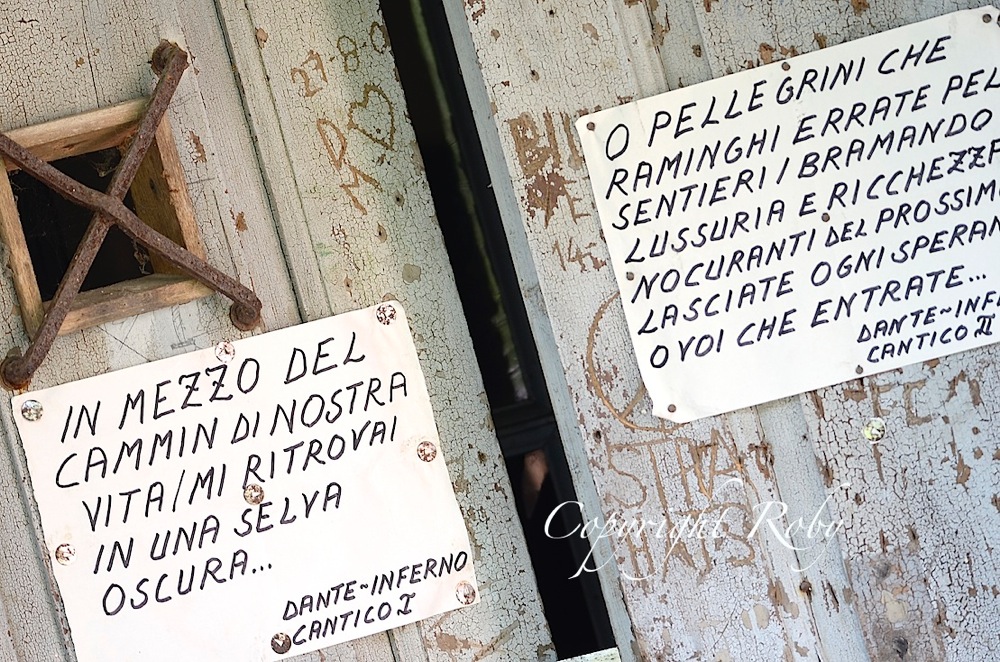 IN MEZZO DEL
CAMMIN DI NOSTRA
VITA/MI RITROVAI
IN UNA SELVA
OSCURA...
DANTE~INFERNO
CANTICO I
O PELLEGRINI CHE
RAMINGHI ERRATE PEL
SENTIERI/BRAMANDO
LUSSURIA E RICCHEZZA
NOCURANTI DEL PROSSIMO
LASCIATE OGNI SPERAN
O VOI CHE ENTRATE...
DANTE~INF
CANTICO III
Copyright Roby